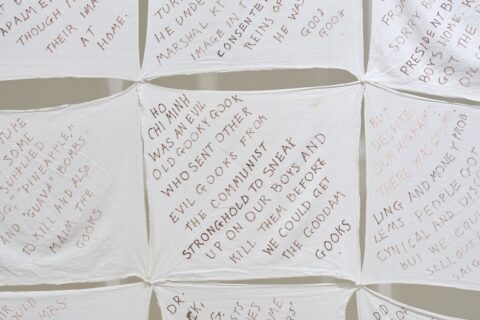 THOUGH I
THEIR MA
AT HOME.
HE UNDE
MARSHALL KY
IMAGE IN T
CONSENTE
REINS OF
HE WAS
GOOD
GOOK
SORRY B
PRESIDENT B
BOYS HOME. K
GOT THE
SOME
SUPPLIED
"PINEAPPLE"
AND "GUAVA" BOMBS.
TO KILL AND ALSO
MAIM THE
GOOKS
HO
CHI MINH
WAS AN EVIL
OLD GOOKY GOOK
WHO SENT OTHER
EVIL GOOKS FROM
THE COMMUNIST
STRONGHOLD TO SNEAK
UP ON OUR BOYS AND
KILL THEM BEFORE
WE COULD GET
THE GODDAM
GOOKS
BUT
DESPITE
OUR HIGH AIM
THERE WAS GAMB
LING AND MONEY PROB
LEMS PEOPLE GOT
CYNICAL AND DIS
BUT WE COU
SELL OUT
SAIG
OULD
MBS
DR.